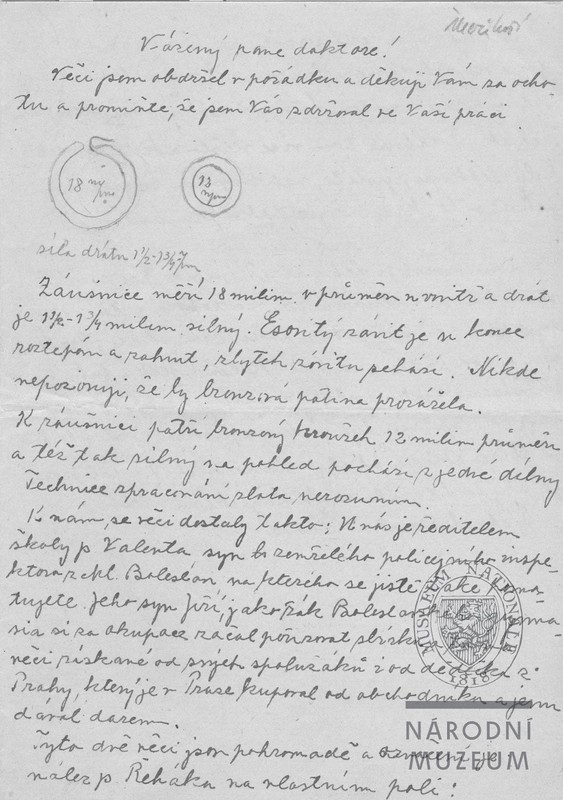 Vážený pane doktore!
Věci jsem obdržel v pořádku a děkuji Vám za ocho-
tu a promiňte, že jsem Vás zdržoval ve Vaší práci
18
12
síla drátu 1½-1¾
Záušnice měří 18 milim. v průměru uvnitř a drát
je 1½-1¾ milim. silný. Esovitý závit je u konce
roztepán a zahnut, zbytek závitu schází. Nikde
nepozoruji, že by bronzová patina prozářela.
K záušnici patří bronzový kroužek 12 milim průměru
a též tak silný na pohled pochází z jedné dílny
Technice zpracování zlata nerozumím.
K nám se věci dostaly takto; U nás je ředitelem
školy p Valenta syn b zemřelého policejního inspe-
ktora z Ml. Boleslavi na kterého se jistě také
tujete. Jeho syn Jiří, jako žák
si za okupace začal
věci získané od svých spolužáků i od dědečka z
Prahy, který je v Praze kupoval od obchodníků a jemu
dával darem.
Tyto dvě věci jsou pohromadě a označení je
nález p. Řeháka na vlastním poli!
MUSEUM NATIONALE
1818
NÁRODNÍ
MUZEUM